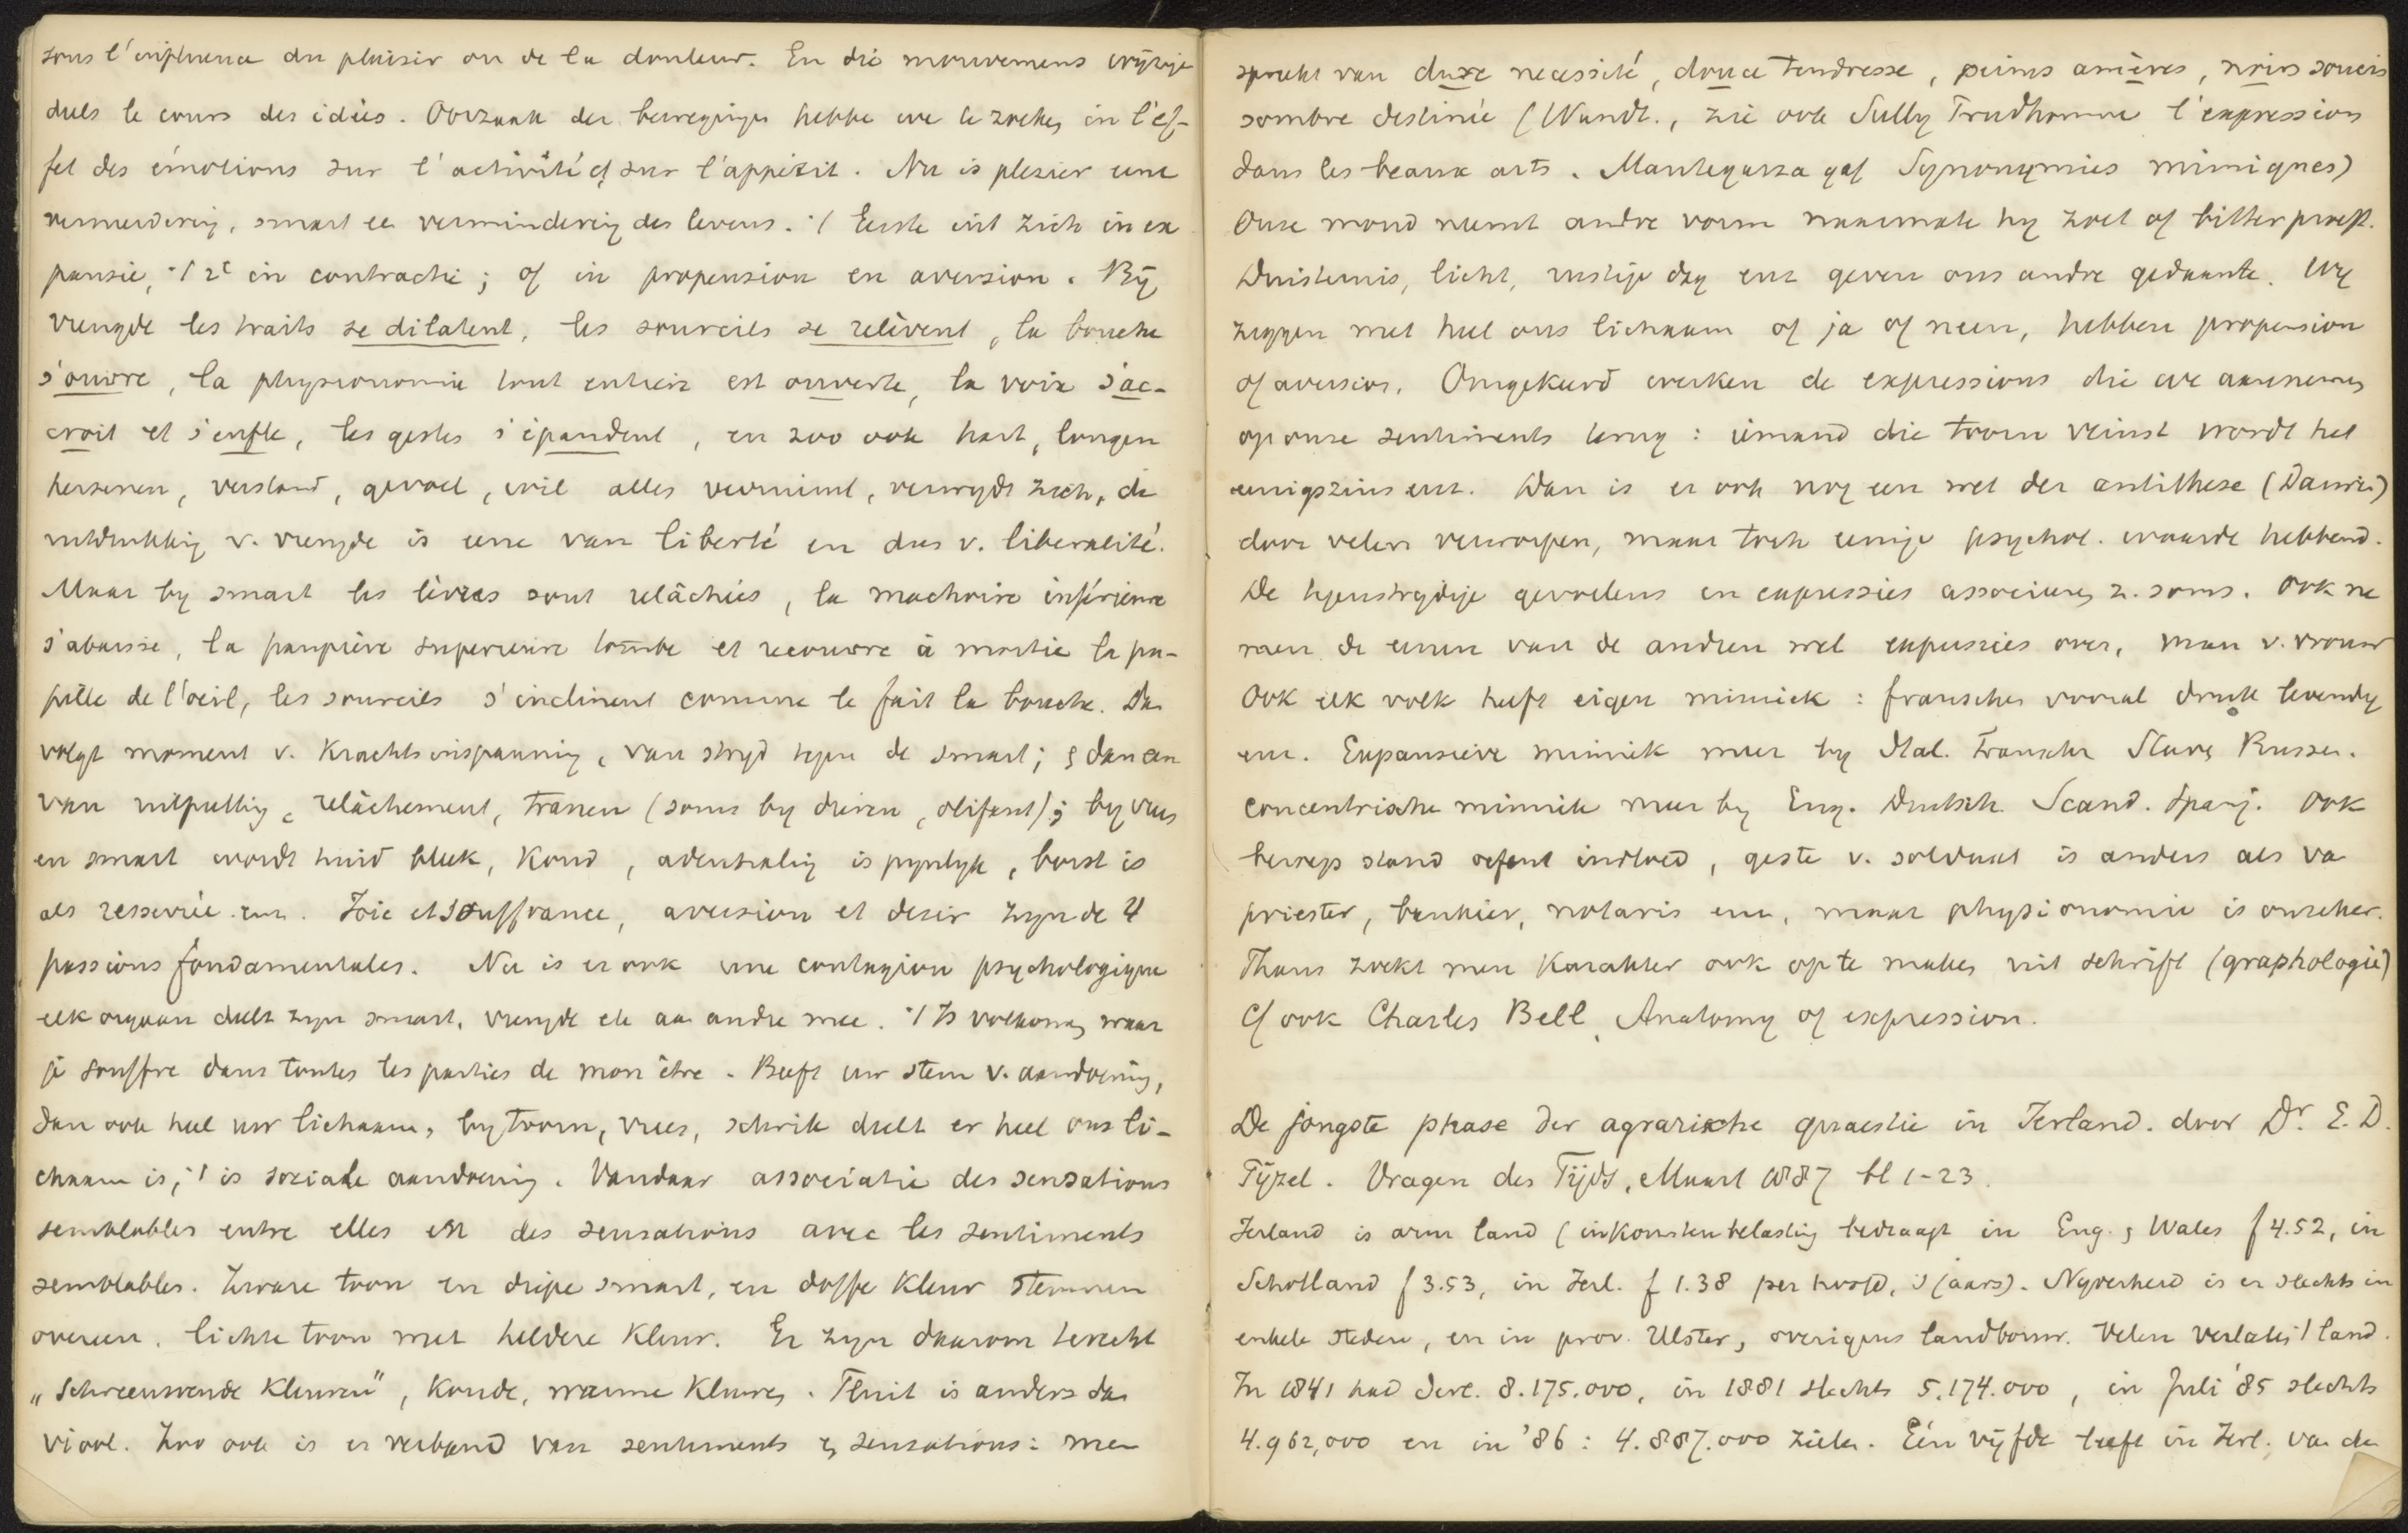 sous l'influence du plaisir ou de la douleur. En die mouvemens wijzige
dels le cours des idées. Oorzaak der bewegingen hebbe we te zoeken in l'ef-
fet des émotions sur l'activité & sur l'appétit. Nu is plezier eene
vermeerdering, smart ee vermindering des levens. 't Eerste uit zich in ex
pansie, 't 2e in contractie; of in propension en aversion. Bij
vreugde les traits se dilatent, les sourcils se relèvent, la bouche
s'ouvre, la physionomie tout entière est ouverte, la voix s'ac-
croit et s'enfle, les gestes s'épandent, en zoo ook hart, longen
hersenen, verstand, gevoel, wil alles verruimt, verwydt zich, de
uitdrukking v. vreugde is eene van liberté en dus v. liberalité.
Maar by smart les lèvres sont relâchées, la machoire inférieure
s'abaisse, la paupière superieure tombe et recouvre à moitié la pu-
pille de l'oeil, les sourcils s'inclinent comme le fait la bouche. Dan
volgt moment v. Krachtsinspanning, van stryd tegen de smart; & dan een
van uitputting, relâchement, tranen (soms by dieren, olifant); by vrees
en smart wordt huid bleek, koud, ademhaling is pynlyk, borst is
als resserrée enz. Joie et souffrance, aversion et desir zyn de 4
passions fondamentales. Nu is er ook eene contagion psychologique
elk orgaan deelt zyn smart, vreugde etc aan andre mee. 't Is volkomen waar
je souffre dans toutes les parties de mon être. Beeft uw stem v. aandoening,
dan ook heel uw lichaam, by toorn, vrees, schrik deelt er heel ons li-
chaam in, 't is soziale aandoening. Vandaar associatie des sensations
semblables entre elles en des sensations avec les sentiments
semblables. Zware toon en diepe smart, en doffe kleur stemmen
overeen, lichte toon met heldere kleur. Er zyn daarom terecht
„Schreeuwende Kleuren", koude, warme kleuren. Fluit is anders dan
viool. Zoo ook is er verband van sentiments & sensations: men
spreekt van dure necessité, douce tendresse, peines amères, noirs soucis
sombre destinée (Wundt., zie ook Sully Prudhomme l'expression
dans les beaux arts. Mantegazza gaf Synonymies mimiques)
Onze mond neemt andre vorm naarmate hy zoet of bitter proeft.
Duisternis, licht, rustige dag enz geven ons andre gedaante. Wy
zeggen met heel ons lichaam of ja of neen, hebben propension
of aversion. Omgekeerd werken de expressions die we aannemen
op onze sentiments terug: iemand die toorn veinst wordt het
eenigszins enz. Dan is er ook nog een wet der antithese (Darwin)
door velen verworpen, maar toch eenige psychol. waarde hebbend.
De tegenstrydige gevoelens en expressies associeeren z. soms. Ook ne
men de eenen van de andren wel expressies over, man v. vrouw
Ook elk volk heeft eigen mimiek: franschen vooral druk levendig
enz. Expansieve mimiek meer by Ital. Fransche Slaven Russen.
concentrische mimiek meer by Eng. Duitsch. Scand. Spanj. Ook
beroep stand oefent invloed, geste v. soldaat is anders als va
priester, bankier, notaris enz, maar physionomie is onzeker.
Thans zoekt men Karakter ook op te maken uit schrift (graphologie)
Cf ook Charles Bell, Anatomy of expression.
De jongste phase der agrarische quaestie in Ierland. door Dr. E. D.
Tijzel. Vragen des Tijds, Maart 1887 bl 1-23.
Ierland is arm land (inkomstenbelasting bedraagt in Eng. & Wales f 4.52, in
Schotland f 3.53, in Ierl. f 1.38 per hoofd, 's jaars). Nyverheid is er slechts in
enkele steden, en in prov. Ulster, overigens landbouw. Velen verlaten 't land.
In 1841 had Ierl. 8.175.000, in 1881 slechts 5.174.000, in Juli '85 slechts
4.962,000 en in '86: 4.887.000 zielen. Één vijfde leeft in Ierl. van de